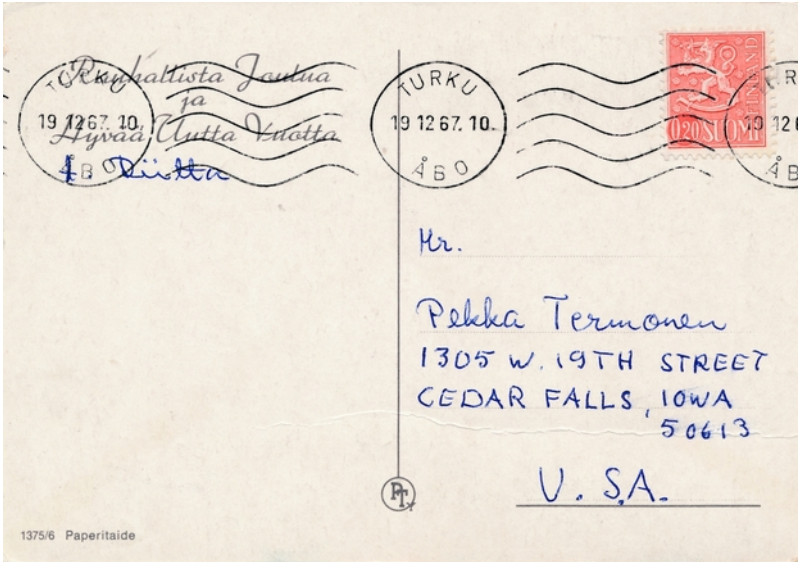 Rauhallista Joulua
ja
Hyvää Uutta Vuotta
t. Riitta
TURKU
19 12 67. 10.
ÅBO
TURKU
19 12 67. 10.
ÅBO
FINLAND
0,20 SUOMI
Mr.
Pekka Termonen
1305 W. 19TH STREET
CEDAR FALLS, IOWA
50613
U.S.A.
PT
1375/6 Paperitaide